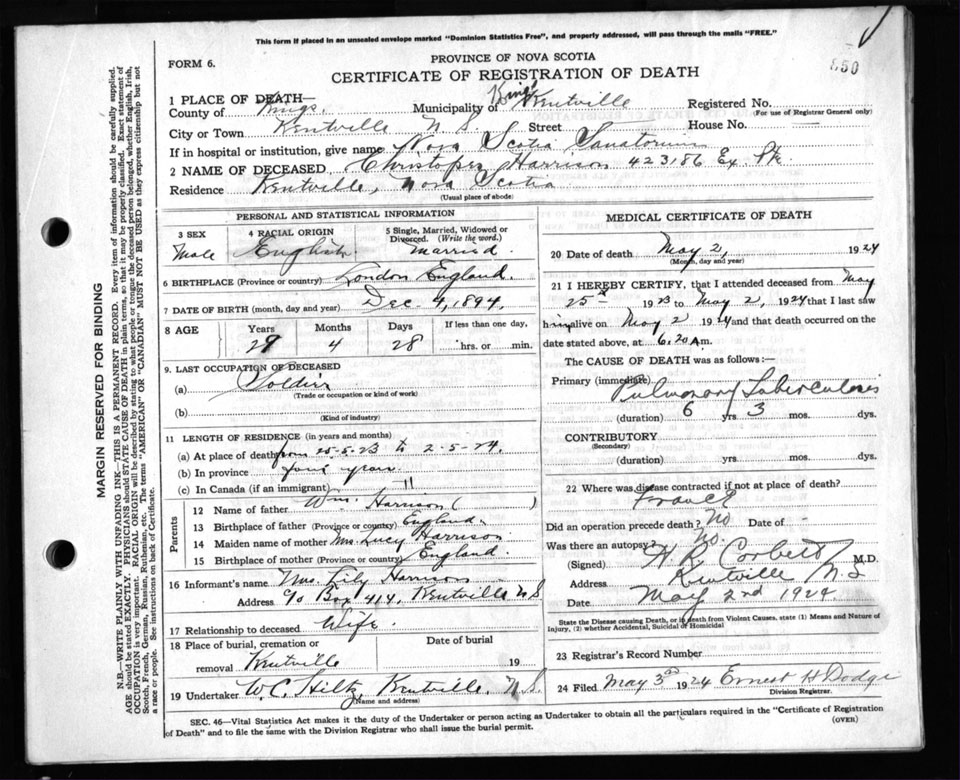 This form if placed in an unsealed envelope marked "Dominion Statistics Free", and properly addressed, will pass through the mails "FREE."
FORM 6.
PROVINCE OF NOVA SCOTIA
550
CERTIFICATE OF REGISTRATION OF DEATH
1 PLACE OF DEATH—
County of Kings. Municipality of Kings Kentville Registered No.
(For use of Registrar General only)
City or Town Kentville N S Street House No.
If in hospital or institution, give name Nova Scotia Sanatorium
2 NAME OF DECEASED Christoper Harrison 423186 Ex. Pte
Residence Kentville, Nova Scotia
(Usual place of abode)
PERSONAL AND STATISTICAL INFORMATION
3 SEX 4 RACIAL ORIGIN 5 Single, Married, Widowed or Divorced. (Write the word.)
Male English married
6 BIRTHPLACE (Province or country) London England.
7 DATE OF BIRTH (month, day and year) Dec 4, 1894.
8 AGE Years Months Days If less than one day,
29 4 28 hrs. or min.
9. LAST OCCUPATION OF DECEASED
(a) Soldier
(Trade or occupation or kind of work)
(b)
(Kind of industry)
11 LENGTH OF RESIDENCE (in years and months)
(a) At place of death from 25-5-23 to 2-5-24.
(b) In province four years
(c) In Canada (if an immigrant) "
Parents
12 Name of father Wm. Harrison ( )
13 Birthplace of father (Province or country) England.
14 Maiden name of mother Mrs. Lucy Harrison
15 Birthplace of mother (Province or country) England.
16 Informant's name Mrs. Lily Harrison
Address c/o Box 414, Kentville N S
17 Relationship to deceased Wife.
18 Place of burial, cremation or removal Kentville Date of burial 19
19 Undertaker W. C. Hiltz, Kentville, N S.
(Name and address)
MEDICAL CERTIFICATE OF DEATH
20 Date of death May 2, 1924
(Month, day and year)
21 I HEREBY CERTIFY, that I attended deceased from May
25th 1923 to May 2, 1924 that I last saw
him alive on May 2 1924 and that death occurred on the
date stated above, at 6.20 A m.
The CAUSE OF DEATH was as follows:—
Primary (immediate) Pulmonary Tuberculosis
(duration) 6 yrs 3 mos. dys.
CONTRIBUTORY
(Secondary)
(duration) yrs mos. dys.
22 Where was disease contracted if not at place of death?
France
Did an operation precede death? No Date of -
Was there an autopsy? No.
(Signed) H R Corbett M.D.
Address Kentville N.S
Date May 2nd 1924
State the Disease causing Death, or in death from Violent Causes, state (1) Means and Nature of
Injury, (2) whether Accidental, Suicidal or Homicidal
23 Registrar's Record Number
24 Filed May 3rd 1924 Ernest H Dodge
Division Registrar.
SEC. 46—Vital Statistics Act makes it the duty of the Undertaker or person acting as Undertaker to obtain all the particulars required in the "Certificate of Registration
of Death" and to file the same with the Division Registrar who shall issue the burial permit.
(OVER)
MARGIN RESERVED FOR BINDING
N.B.—WRITE PLAINLY WITH UNFADING INK—THIS IS A PERMANENT RECORD. Every item of information should be carefully supplied.
AGE should be stated EXACTLY. PHYSICIANS should STATE CAUSE OF DEATH in plain terms, so that it may be properly classified. Exact statement of
OCCUPATION is very important. RACIAL ORIGIN will be described by stating to what people or tongue the deceased person belonged, whether English, Irish,
Scotch, French, German, Russian, Ruthenian, etc. The terms "AMERICAN" OR "CANADIAN" MUST NOT BE USED as they express citizenship but not
a race or people. See instructions on back of Certificate.